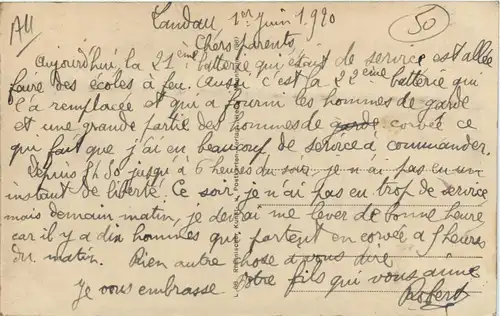 All
Landau, 1er Juin 1920
50
Chers parents,
Aujourd'hui, la 21ème batterie qui était de service est allée
faire des écoles à feu. Aussi c'est la 22ème batterie qui
l'a remplacée et qui a fourni les hommes de garde
et une grande partie des hommes de garde corvée ce
qui fait que j'ai eu beaucoup de service à commander.
Depuis 5h30 jusqu'à 6 heures du soir je n'ai pas eu un
instant de liberté. Ce soir, je n'ai pas eu trop de service
mais demain matin, je devrai me lever de bonne heure
car il y a dix hommes qui partent en corvée à 5 heures
du matin. Rien autre chose à vous dire
Votre fils qui vous aime
Je vous embrasse
Robert